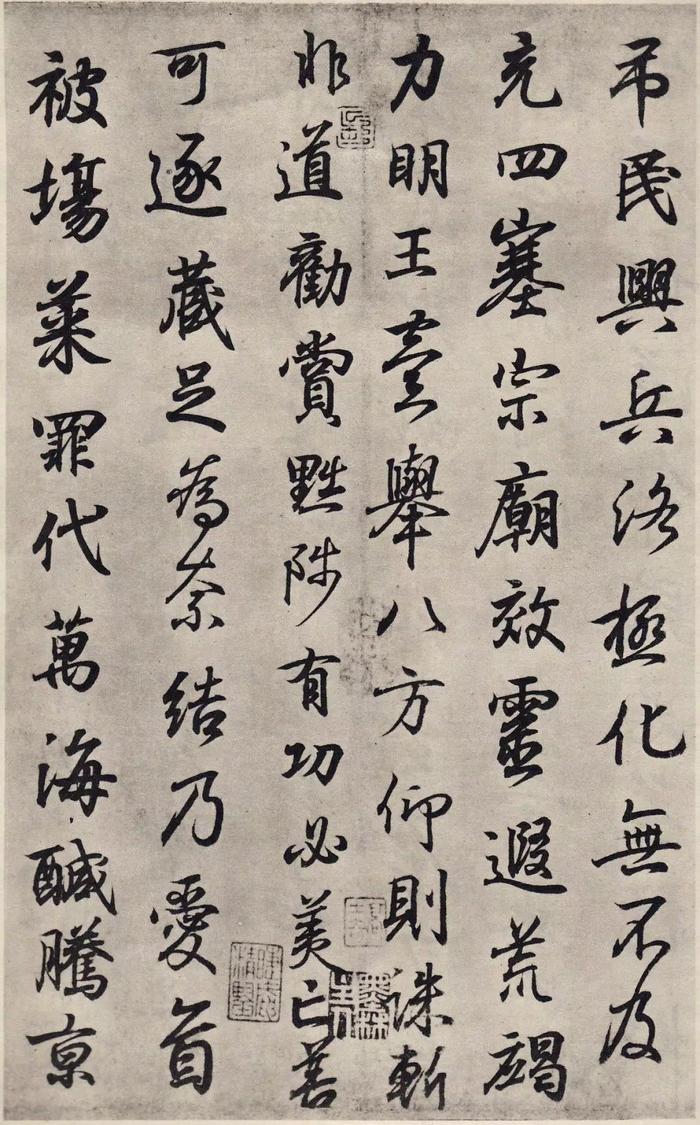 吊民興兵洛極化無不及
充四塞宗廟效靈遐荒竭
力明王壹舉八方仰則誅斬
非道勸賞黜陟有功必美亡善
可逐藏足為奈結乃愛首
被場菜罪代萬海鹹騰京